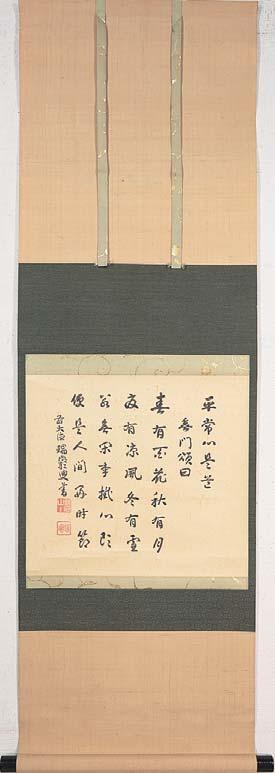 平常心是道
無門頌曰
春有百花秋有月
夏有涼風冬有雪
若無閑事挂心頭
便是人間好時節
前大徳瑞巌  書